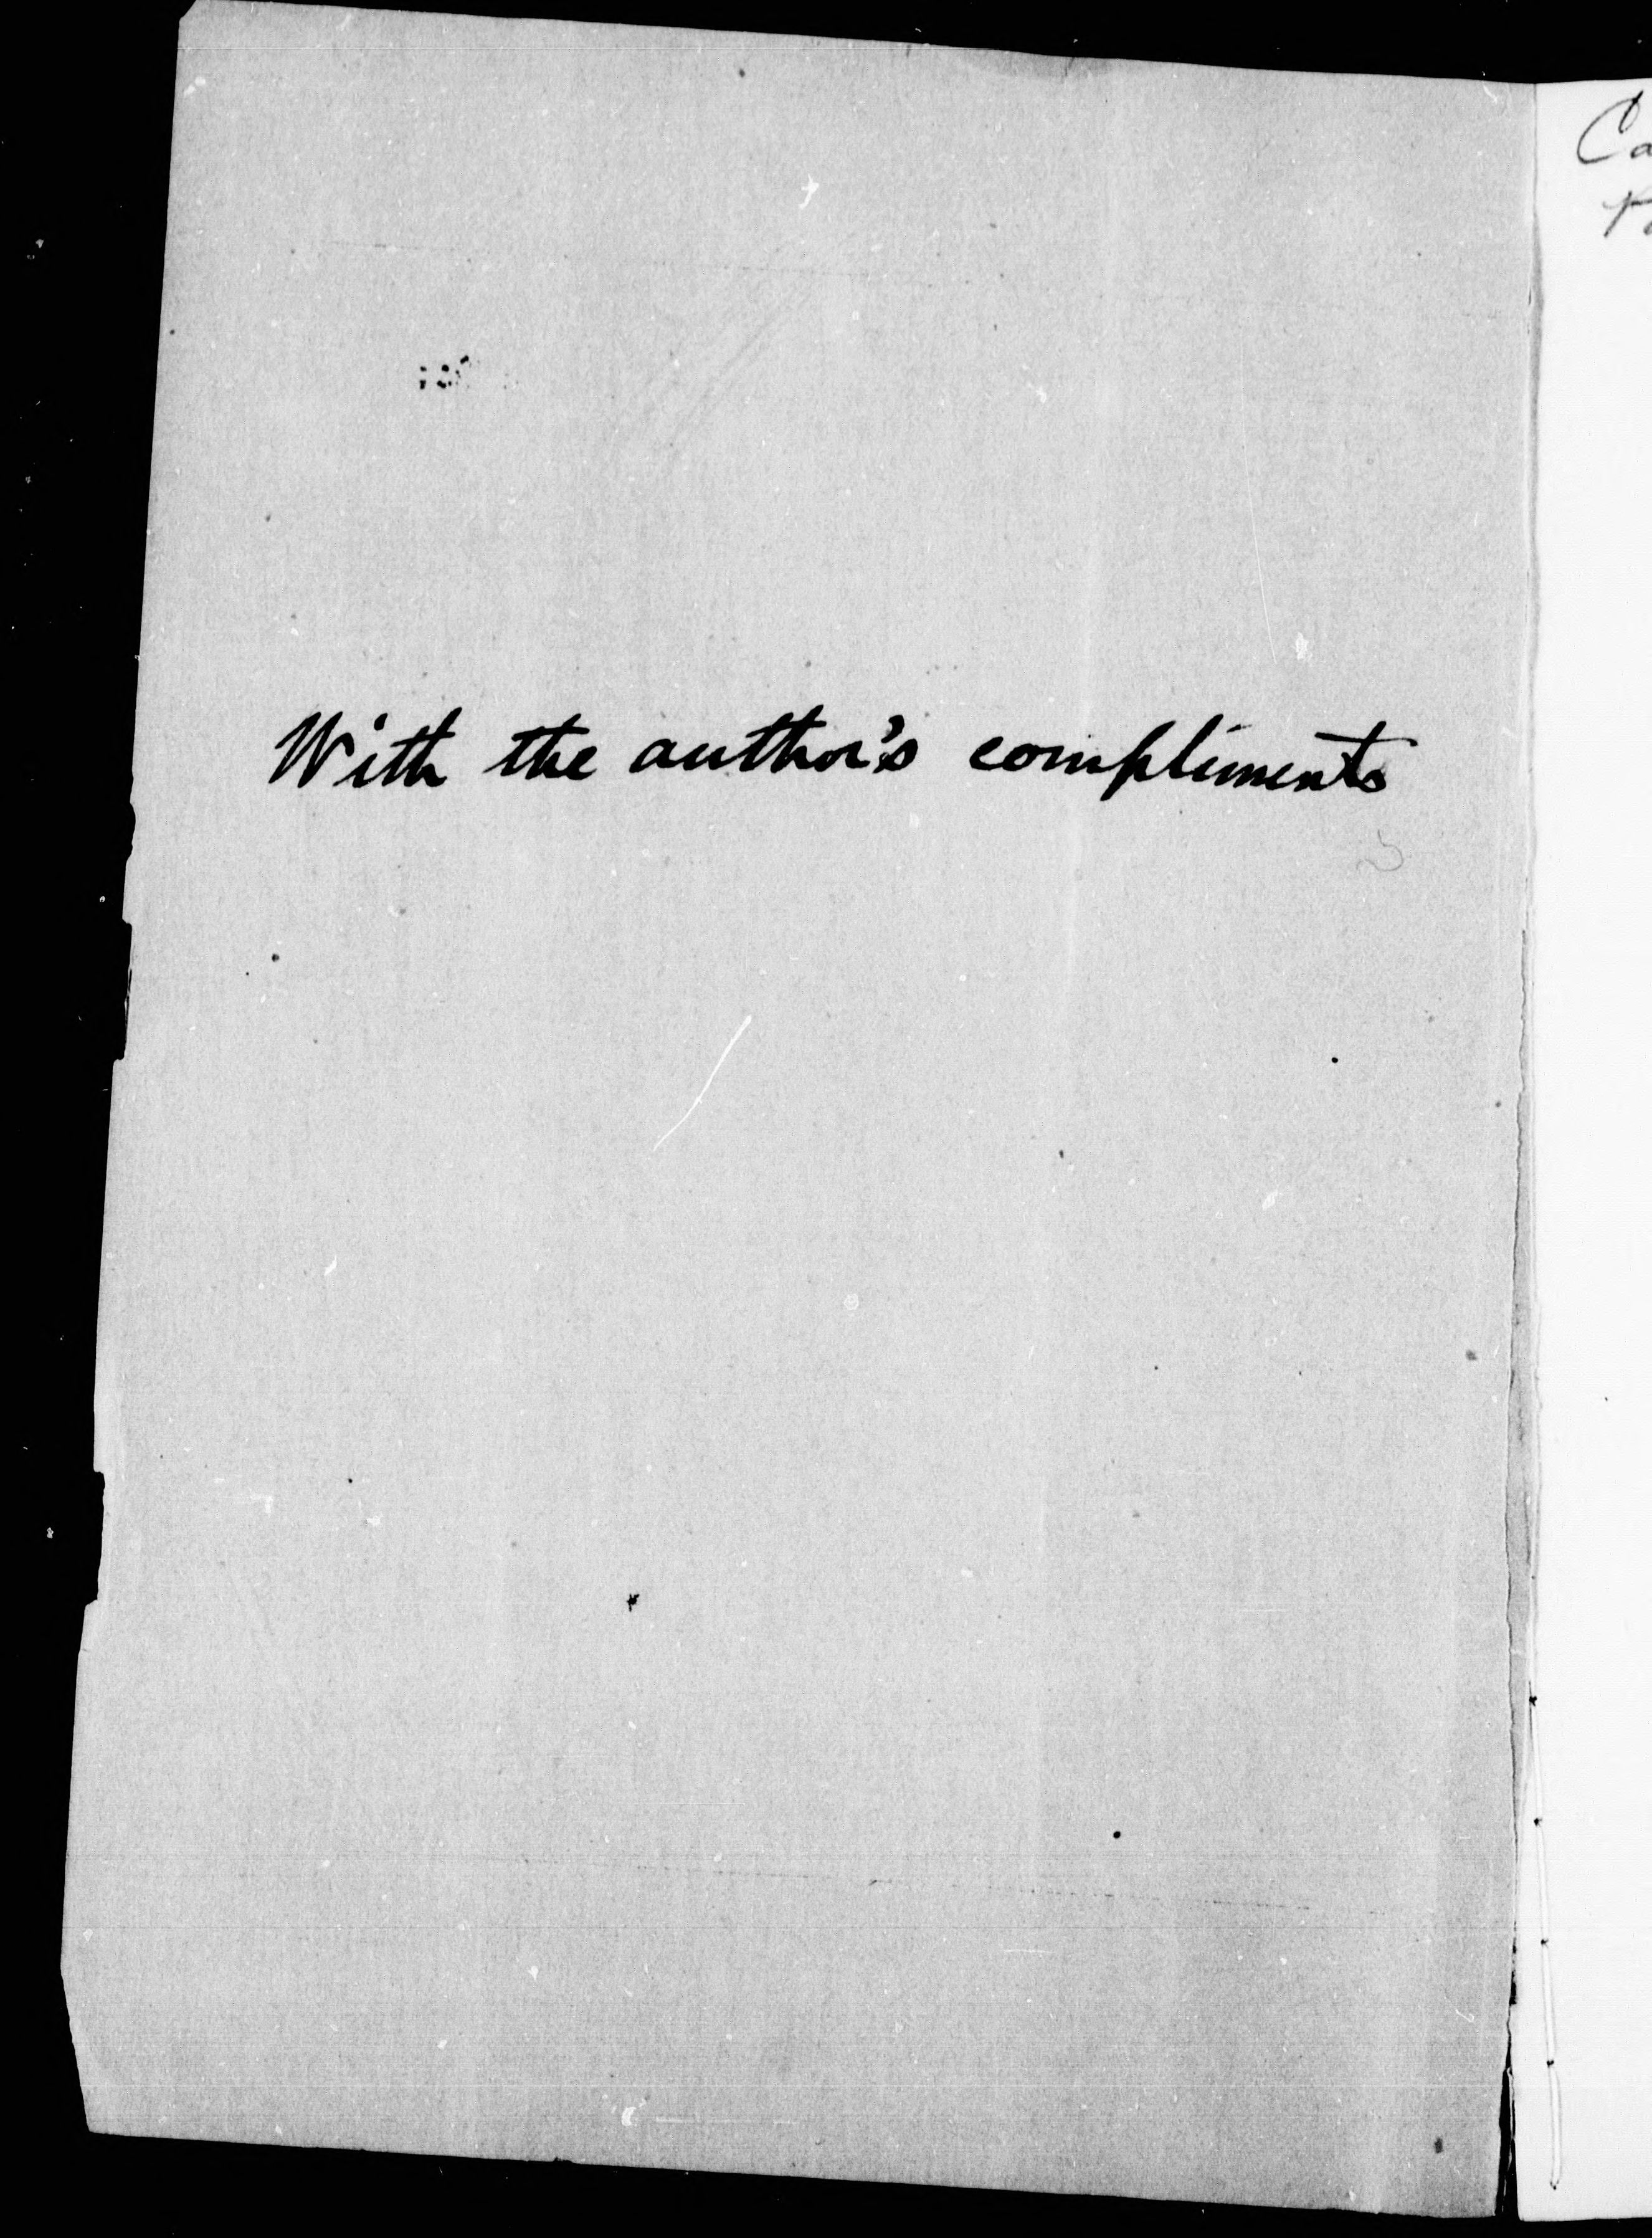 With the author's compliments
Ca